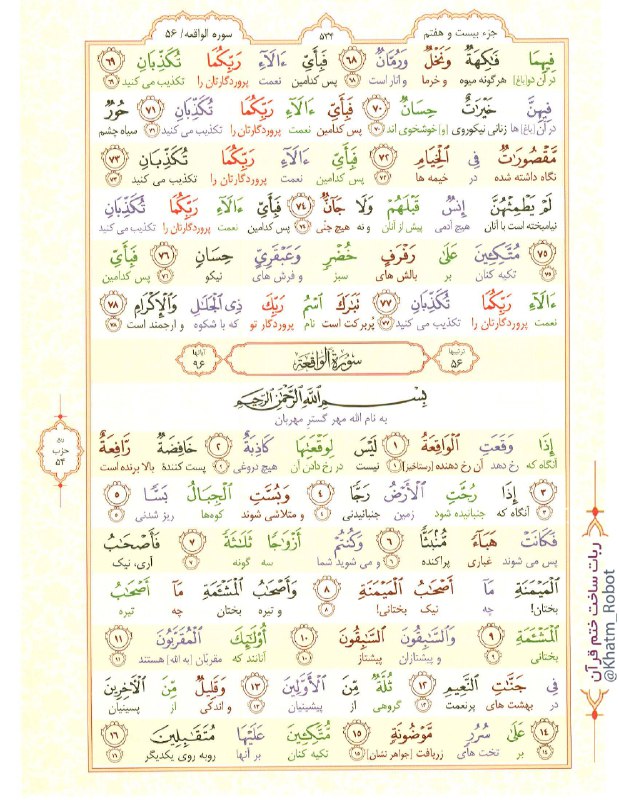 جزء بیست و هفتم
۵۳۴
سوره الواقعه/ ۵۶
فِيهِمَا فَٰكِهَةٌ وَنَخْلٌ وَرُمَّانٌ ۶۸ فَبِأَيِّ ءَالَآءِ رَبِّكُمَا تُكَذِّبَانِ ۶۹
در آن دو[باغ] هر گونه میوه و خرما و انار است ۶۸ پس کدامین نعمت پروردگارتان را تکذیب می کنید ۶۹
فِيهِنَّ خَيْرَٰتٌ حِسَانٌ ۷۰ فَبِأَيِّ ءَالَآءِ رَبِّكُمَا تُكَذِّبَانِ ۷۱ حُورٌ
در آن[باغ] ها زنانی نیکوروی [و] خوشخوی اند ۷۰ پس کدامین نعمت پروردگارتان را تکذیب می کنید ۷۱ سیاه چشم
مَّقْصُورَٰتٌ فِي الْخِيَامِ ۷۲ فَبِأَيِّ ءَالَآءِ رَبِّكُمَا تُكَذِّبَانِ ۷۳
نگاه داشته شده در خیمه ها ۷۲ پس کدامین نعمت پروردگارتان را تکذیب می کنید ۷۳
لَمْ يَطْمِثْهُنَّ إِنسٌ قَبْلَهُمْ وَلَا جَانٌّ ۷۴ فَبِأَيِّ ءَالَآءِ رَبِّكُمَا تُكَذِّبَانِ
نیامیخته است با آنان هیچ آدمی پیش از آنان و نه هیچ جنّی ۷۴ پس کدامین نعمت پروردگارتان را تکذیب می کنید
۷۵ مُتَّكِـِٔينَ عَلَىٰ رَفْرَفٍ خُضْرٍ وَعَبْقَرِيٍّ حِسَانٍ ۷۶ فَبِأَيِّ
۷۵ تکیه کنان بر بالش های سبز و فرش های نیکو ۷۶ پس کدامین
ءَالَآءِ رَبِّكُمَا تُكَذِّبَانِ ۷۷ تَبَٰرَكَ اسْمُ رَبِّكَ ذِي الْجَلَٰلِ وَالْإِكْرَامِ ۷۸
نعمت پروردگارتان را تکذیب می کنید ۷۷ پُربرکت است نام پروردگار تو که با شکوه و ارجمند است ۷۸
ترتیبها ۵۶
سُورَةُ الْوَاقِعَةِ
آیاتها ۹۶
بِسْمِ اللَّهِ الرَّحْمَٰنِ الرَّحِيمِ
به نام الله مهر گستر مهربان
إِذَا وَقَعَتِ الْوَاقِعَةُ ۱ لَيْسَ لِوَقْعَتِهَا كَاذِبَةٌ ۲ خَافِضَةٌ رَّافِعَةٌ
آنگاه که رخ دهد آن رخ دهنده [رستاخیز] ۱ نیست در رخ دادن آن هیچ دروغی ۲ پست کنندۀ بالا برنده است
۳ إِذَا رُجَّتِ الْأَرْضُ رَجًّا ۴ وَبُسَّتِ الْجِبَالُ بَسًّا ۵
۳ آنگاه که جنبانیده شود زمین جنبانیدنی ۴ و متلاشی شوند کوه‌ها ریز شدنی ۵
فَكَانَتْ هَبَآءً مُّنۢبَثًّا ۶ وَكُنتُمْ أَزْوَٰجًا ثَلَٰثَةً ۷ فَأَصْحَٰبُ
پس می شوند غباری پراکنده ۶ و می شوید شما سه گونه ۷ آری، نیک
الْمَيْمَنَةِ مَآ أَصْحَٰبُ الْمَيْمَنَةِ ۸ وَأَصْحَٰبُ الْمَشْـَٔمَةِ مَآ أَصْحَٰبُ
بختان! چه نیک بختانی! ۸ و تیره بختان چه تیره
الْمَشْـَٔمَةِ ۹ وَالسَّٰبِقُونَ السَّٰبِقُونَ ۱۰ أُو۟لَٰٓئِكَ الْمُقَرَّبُونَ ۱۱
بختانی ۹ و پیشتازان پیشتاز ۱۰ آنانند که مقربّان [به الله] هستند ۱۱
فِي جَنَّٰتِ النَّعِيمِ ۱۲ ثُلَّةٌ مِّنَ الْأَوَّلِينَ ۱۳ وَقَلِيلٌ مِّنَ الْآخِرِينَ
در بهشت های پرنعمت ۱۲ گروهی از پیشینیان ۱۳ و اندکی از پسینیان
۱۴ عَلَىٰ سُرُرٍ مَّوْضُونَةٍ ۱۵ مُّتَّكِـِٔينَ عَلَيْهَا مُتَقَٰبِلِينَ ۱۶
۱۴ بر تخت های زربافت [جواهر نشان] ۱۵ تکیه کنان بر آنها روبه روی یکدیگر ۱۶
حزب
۵۴
ربات ساخت ختم قرآن
@Khatm_Robot